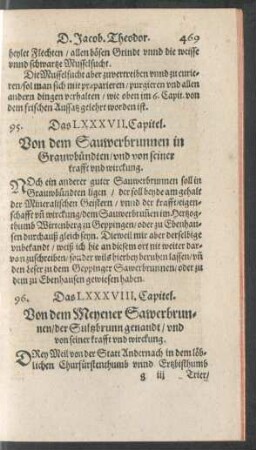 D. Jacob. Theodor. 469
heylet Flechten / allen bösen Grindt vnnd die weisse
vnnd schwartze Musselsucht.
Die Musselsucht aber zu vertreiben vnnd zu curie-
ren / sol man sich mit præparieren / purgieren vnd allen
andern dingen verhalten / wie oben im 6. Capit. von
dem frischen Aussatz gelehrt worden ist.
95. Das LXXXVII. Capitel.
Von dem Sauwerbrunnen in
Grauwbündten / vnd von seiner
krafft vnd wirckung.
NOch ein anderer guter Sauwerbrunnen soll in
Grauwbündten ligen / der soll beyde am gehalt
der Mineralischen Geistern / vnnd der krafft / eigen-
schafft vñ wirckung / dem Sauwerbruñen im Hertzog-
thumb Wirtenberg zu Geppingen / oder zu Ebenhau-
sen durchauß gleich seyn. Dieweil mir aber derselbige
vnbekandt / weiß ich hie an diesem ort nit weiter dar-
von zuschreiben / sonder wils hierbey beruhen lassen / vñ
den leser zu dem Geppinger Sawerbrunnen / oder zu
dem zu Ebenhausen gewiesen haben.
96. Das LXXXVIII. Capitel.
Von dem Meyener Sawerbrun-
nen / der Sultzbrunn genandt / vnd
von seiner krafft vnd wirckung.
DRey Meil von der Statt Andernach in dem löb-
lichen Churfürstenthumb vnnd Ertzbisthumb
g iij Trier /